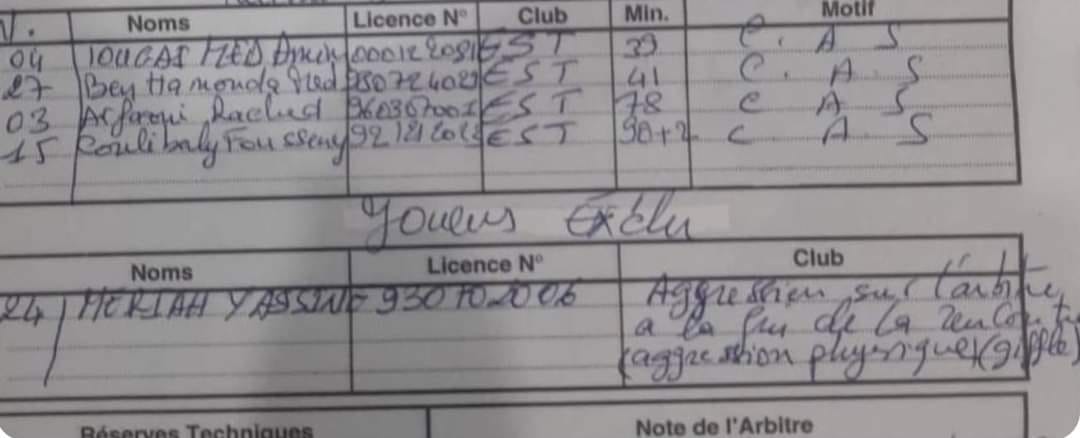 N. Noms Licence N° Club Min. Motif
04 TOUGAI MED Amin 000122081 EST 39 C. A S
27 Ben Hamouda Med EST 41 C. A. S
03 Rached EST 78 C A S
15 Coulibaly Fousseny EST 90+2 C A S
Joueus Exclu
Noms Licence N° Club
24 MERIAH YASSINE 930702006 Aggression sur l'arbitre
a la fin de la rencontre
(aggression physique) (giffle)
Réserves Techniques Note de l'Arbitre